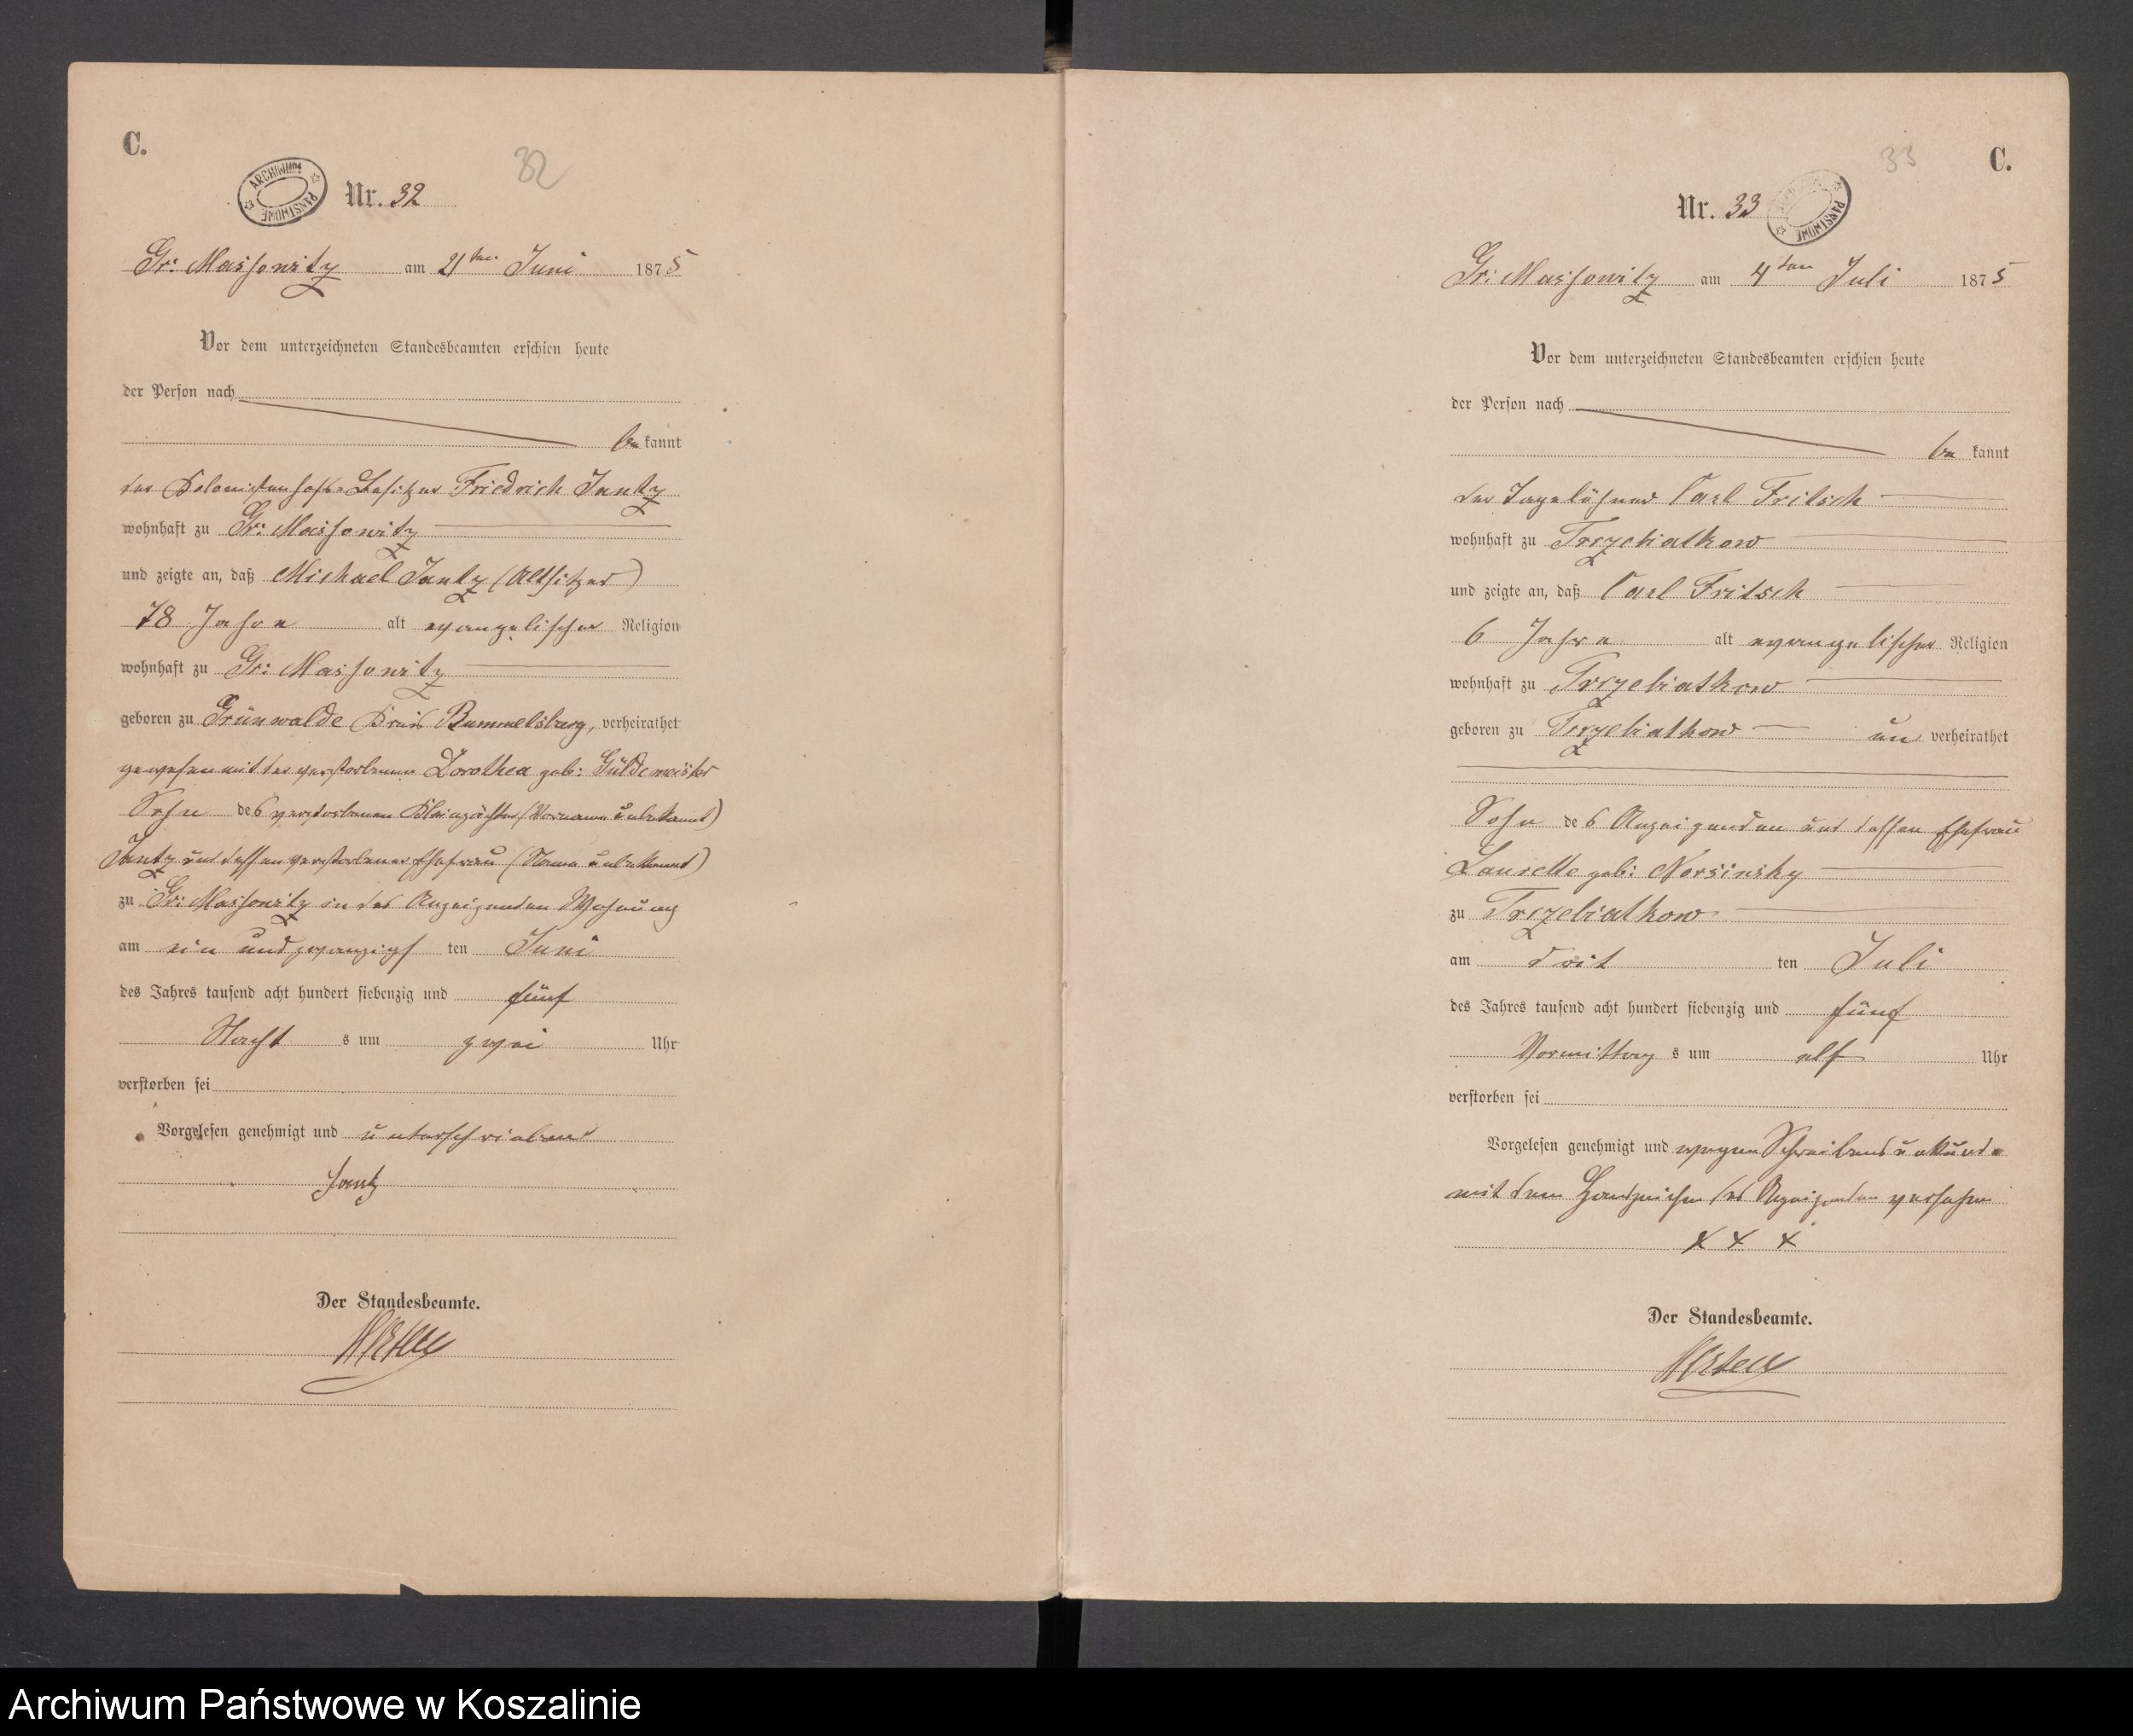 C.
ARCHIWUM PAŃSTWOWE
32
Nr. 32
Gr: Massowitz am 21ten Juni 1875
Vor dem unterzeichneten Standesbeamten erschien heute
der Person nach
bekannt
der Kolonistenhofs-Besitzer Friedrich Jantz
wohnhaft zu Gr: Massowitz
und zeigte an, daß Michael Jantz (Altsitzer)
78 Jahre alt evangelischer Religion
wohnhaft zu Gr: Massowitz
geboren zu Grünwalde Kreis Rummelsburg, verheirathet
gewesen mit der verstorbenen Dorothea geb: Güldemeister
Sohn des verstorbenen (Vorname unbekannt)
Jantz und dessen verstorbener Ehefrau (Name unbekannt)
zu Gr: Massowitz in des Anzeigenden Wohnung
am ein und zwanzigsten Juni
des Jahres tausend acht hundert siebenzig und fünf
Nachts um zwei Uhr
verstorben sei
Vorgelesen genehmigt und unterschrieben
Jantz
Der Standesbeamte.
C.
33
ARCHIWUM PAŃSTWOWE
Nr. 33
Gr: Massowitz am 4ten Juli 1875
Vor dem unterzeichneten Standesbeamten erschien heute
der Person nach
bekannt
der Tagelöhner Carl Fritsch
wohnhaft zu Trzebiatkow
und zeigte an, daß Carl Fritsch
6 Jahre alt evangelischer Religion
wohnhaft zu Trzebiatkow
geboren zu Trzebiatkow unverheirathet
Sohn des Anzeigenden und dessen Ehefrau
geb:
zu Trzebiatkow
am dritten Juli
des Jahres tausend acht hundert siebenzig und fünf
Vormittags um elf Uhr
verstorben sei
Vorgelesen genehmigt und wegen Schreibensunkunde
mit dem Handzeichen des Anzeigenden versehen
x x x
Der Standesbeamte.
Archiwum Państwowe w Koszalinie